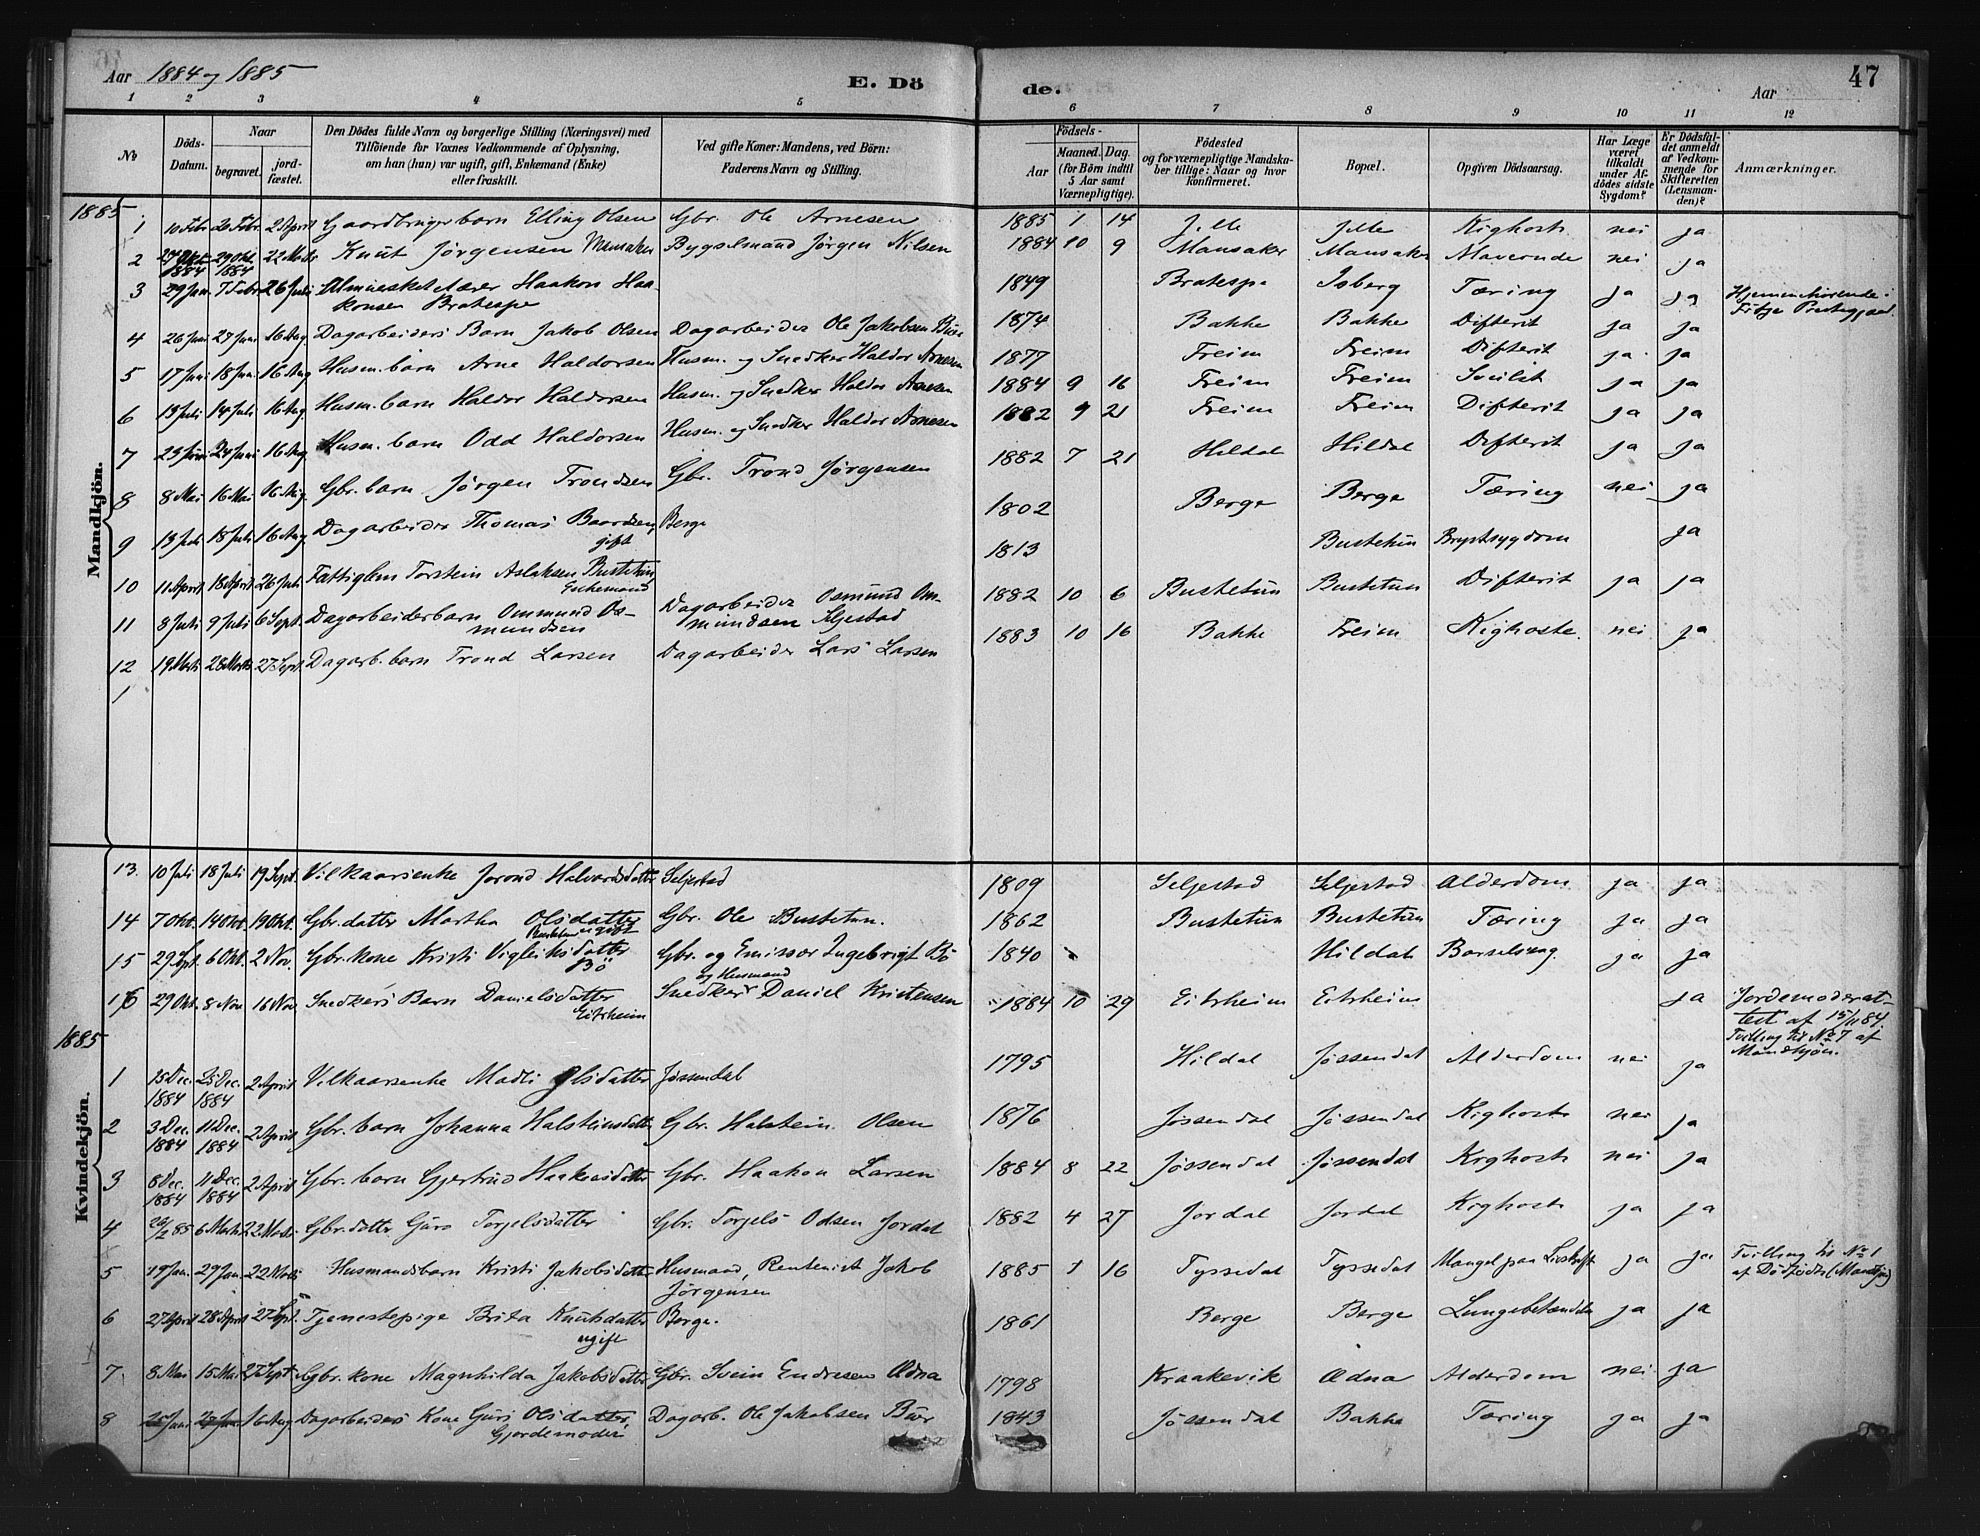 Aar 1884 og 1885
E. Dö
de.
Aar
47
1 2 3 4 5 6 7 8 9 10 11 12
No
Döds-Datum.
Naar
begravet.
jord-fæstet.
Den Dödes fulde Navn og borgerlige Stilling (Næringsvei) med
Tilföiende for Voxnes Vedkommende af Oplysning,
om han (hun) var ugift, gift, Enkemand (Enke)
eller fraskilt.
Ved gifte Koner: Mandens, ved Börn:
Faderens Navn og Stilling.
Födsels-
Aar
Maaned. Dag.
(for Börn indtil
5 Aar samt
Værnepligtige).
Födested
og for værnepligtige Mandska-
ber tillige: Naar og hvor
konfirmeret.
Bopæl.
Opgiven Dödsaarsag.
Har Læge
været
tilkaldt
under Af-
dödes sidste
Sygdom?
Er Dödsfal-
det anmeldt
af Vedkom-
mende for
Skifteretten
(Lensman-
den)?
Anmærkninger.
1885
Mandkjön.
1 10 Febr 20 Febr 2 April Gaardbrugerbarn Elling Olsen Gbr. Ole Arnesen 1885 1 14 Jelle Jelle Kighoste nei ja
2 1884 29 Okt. 1884 22 Marts Knut Jørgensen Mansaker Bygselmand Jørgen Nilsen 1884 10 9 Mansaker Mansaker Mavernde nei ja
3 29 Jan 7 Febr 26 Juli Haakon Haa-
konsen Bratespe 1849 Bratespe Isberg Tæring ja ja Hjemmehørende i
Præstegjæld.
4 26 Juni 27 Juni 16 Aug. Dagarbeiders Barn Jakob Olsen Dagarbeider Ole Jakobsen Buer 1874 Bakke Bakke Difterit ja ja
5 17 Juni 18 Juni 16 Aug Husm.barn Arne Haldorsen Husm. og Snedker Haldor Arnesen 1877 Freim Freim Difterit ja ja
6 13 Juli 14 Juli 16 Aug. Husm.barn Haldor Haldorsen Husm. og Snedker Haldor Arnesen 1884 9 16 Freim Freim ja ja
7 23 Juni 24 Juni 16 Aug. Husm.barn Odd Haldorsen Husm. og Snedker Haldor Arnesen 1882 9 21 Freim Freim Difterit ja ja
8 8 Mai 16 Mai 16 Aug. Gbr.barn Jørgen Trondsen Gbr. Trond Jørgensen 1882 7 21 Hildal Hildal Difterit ja ja
9 13 Juli 18 Juli 16 Aug. Dagarbeider Thomas Baardsen, Berge
gift 1802 Berge Berge Tæring nei ja
10 11 April 18 April 26 Juli Fattiglem Torstein Aslaksen Bustetun
Enkemand 1813 Bustetun Brystsygdom ja
11 8 Juli 9 Juli 6 Sept. Dagarbeiderbarn Ommund Os-
mundsen Dagarbeider Osmund Om-
mundsen Seljestad 1882 10 6 Bustetun Bustetun Difterit ja ja
12 19 Marts 28 Marts 27 Sept. Dagarb.barn Trond Larsen Dagarbeider Lars Larsen 1883 10 16 Bakke Freim Kighoste nei ja
1
Kvindekjön.
13. 10 Juli 18 Juli 19 Sept. Vilkaarsenke Jorond Halvardsdatter Seljestad 1809 Seljestad Seljestad Alderdom ja ja
14 7 Okt. 14 Okt. 19 Okt. Gbr.datter Martha Olsdatter
Bustetun ugift Gbr. Ole Bustetun. 1862 Bustetun Bustetun Tæring ja ja
15 29 Sept. 6 Okt. 2 Nov. Gbr.kone Kristi Vigleiksdatter
Bö Gbr. og Emissær Ingebrigt Bö 1840 Hildal Barselseng ja ja
16 29 Okt. 8 Nov 16 Nov. Snedkers Barn Danielsdatter
Eitrheim og Husmand
Snedker Daniel Kristensen 1884 10 29 Eitrheim Eitrheim ja Jordemoderat-
test af 15/11 84.
Tvilling til No 7 af
Mandkjön.
1885
1 15 Dec. 1884 25 Dec. 1884 2 April Vilkaarsenke Madli Olsdatter Jøssendal 1795 Hildal Jøssendal Alderdom nei ja
2 3 Dec. 1884 11 Dec. 1884 2 April Gbr.barn Johanna Halsteinsdatter Gbr. Halstein Olsen 1876 Jøssendal Jøssendal Kighoste nei ja
3 8 Dec. 1884 11 Dec. 1884 2 April Gbr.barn Gjertrud Haakonsdatter Gbr. Haakon Larsen 1884 8 22 Jøssendal Jøssendal Kighoste nei ja
4 20/2 85 6 Marts 22 Marts Gbr.datter Guro Torjelsdatter Gbr. Torjels Odsen Jordal 1882 4 27 Jordal Jordal Kighoste ja ja
5 19 Jan. 29 Jan. 22 Marts Husmandsbarn Kristi Jakobsdatter Husmand, Jakob
Jørgensen 1885 1 16 Tyssedal Tyssedal Mangel paa Livskraft ja ja Tvilling til No 1
af Dødfødte (Mandkjøn)
6 27 April 28 April 27 Sept. Tjenestepige Brita Knutsdatter
ugift Berge. 1861 Berge Berge Lungebetændelse ja ja
7. 8 Mai 15 Mai 27 Sept. Gbr.kone Magnhilda Jakobsdatter Gbr. Svein Endresen Ædna 1798 Kraakevik Ædna Alderdom nei ja
8 25 Juni 16 Aug. Dagarbeiders Kone Guri Olsdatter,
Gjordemoder Dagarb. Ole Jakobsen Buer 1843 Jøssendal Bakke Tæring ja ja